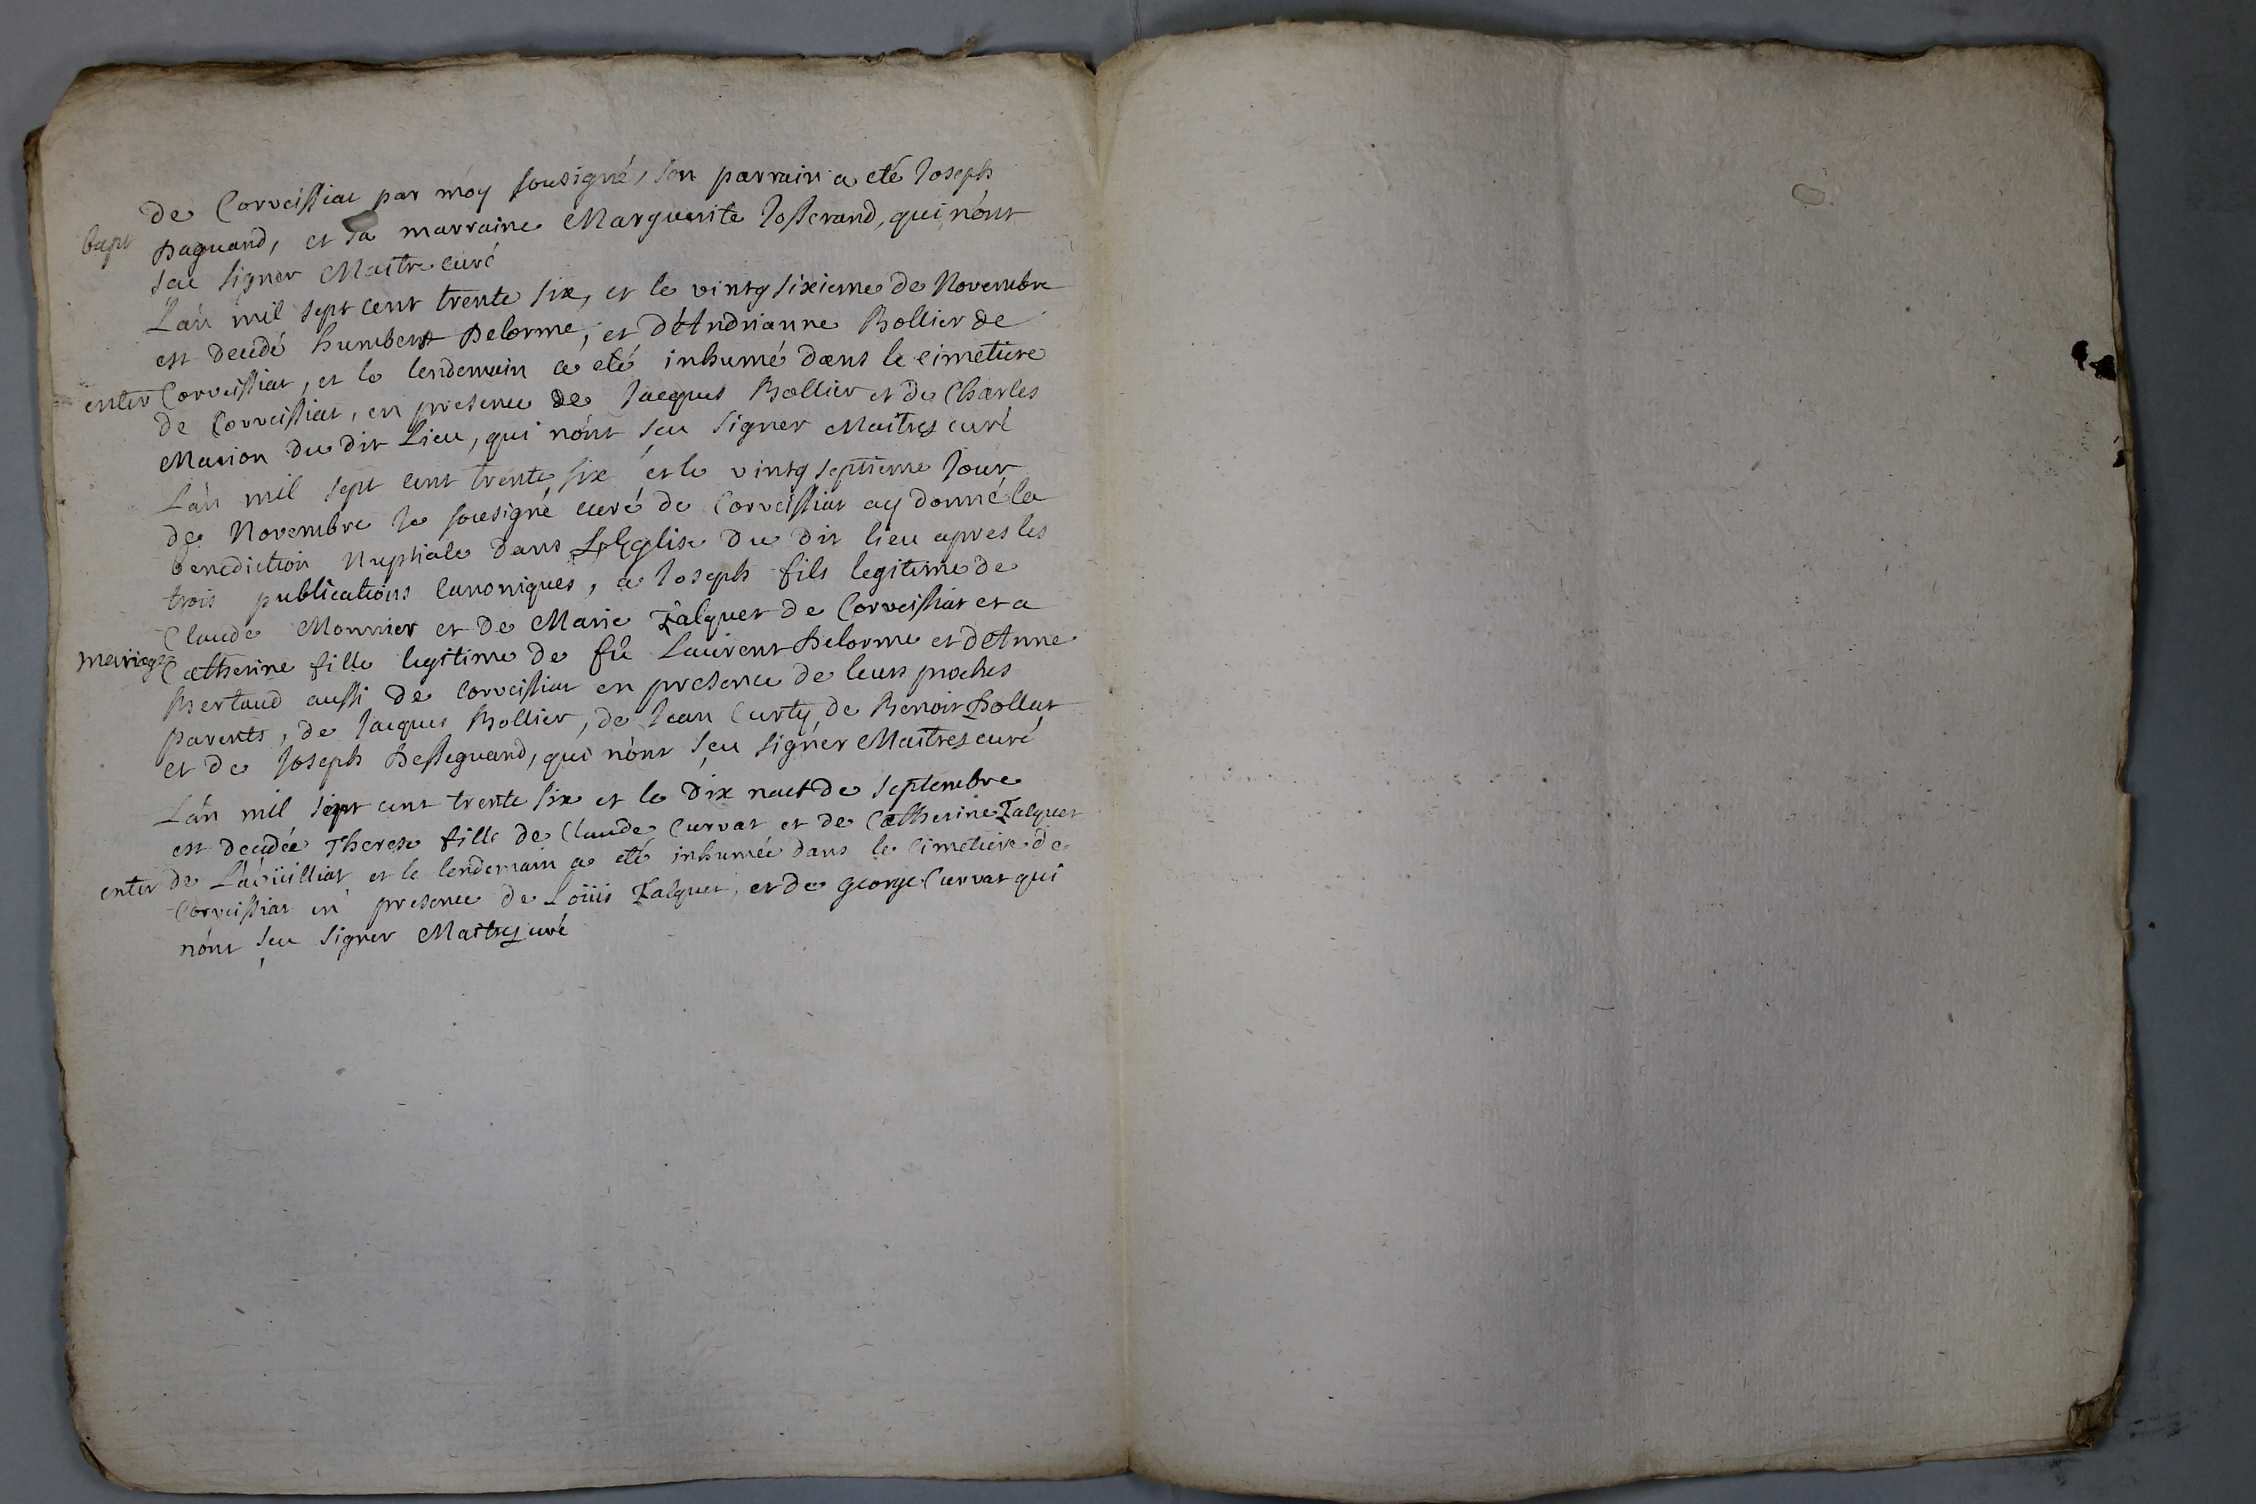 de Corveissiat par moy sousigné, son parrain a eté Joseph
bapt
Daguand, et sa marraine Marguerite Josserand, qui nónt
seu signer Maitre curé
L'an mil sept cent trente six, et le vintg sixieme de Novembre
est decedé humbert Delorme, et d'Andrianne Bollier de
enter
Corveissiat, et le lendemain a eté inhumé dans le cimetiere
de Corveissiat, en presence de Jacques Bollier et de Charles
Marion du dit Lieu, qui nónt seu signer Maitres curé
L'an mil sept cent trente six et le vintg septieme Jour
de Novembre Je sousigné curé de Corveissiat ay donné la
benediction Nuptiale dans L'Eglise du dit lieu apres les
trois publications Canoniques, a Joseph fils legitime de
Claude Monnier et de Marie Falquet de Corveissiat et a
mariage
Catherine fille legitime de fû Laurent Delorme et d'Anne
Bertaud aussi de Corveissiat en presence de leurs proches
parents, de Jacques Bollier, de Jean Curty, de Benoit Bollut
et de Joseph Desseguand, qui nónt seu signer Maitres curé
L'an mil sept cent trente six et le dix neuf de septembre
est decedée Therese fille de Claude Curvat et de Catherine Falquet
enter
de et le lendemain a eté inhumée dans le cimetiere de
Corveissiat en presence de Loüis Falquet, et de george Curvat qui
nónt seu signer Maitres curé